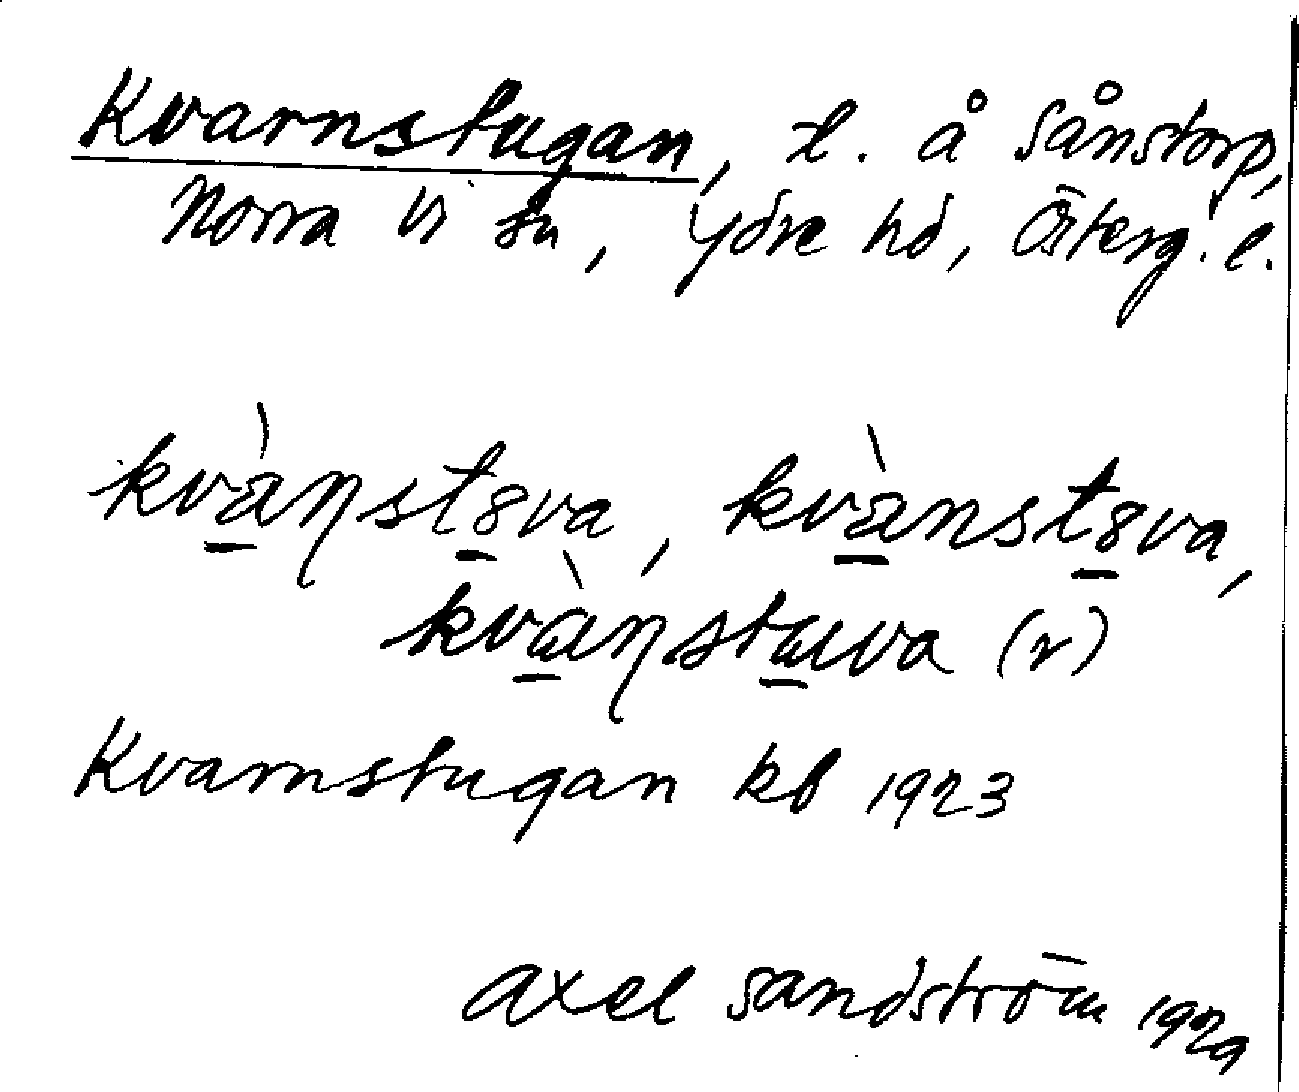 Kvarnstugan, t. å Sånstorp,
Norra Vi sn, Ydre hd, Österg. l.
kvàɳst8va, kvànst8va,
kvàɳstuva (r)
Kvarnstugan kb 1923
Axel Sandström 1929